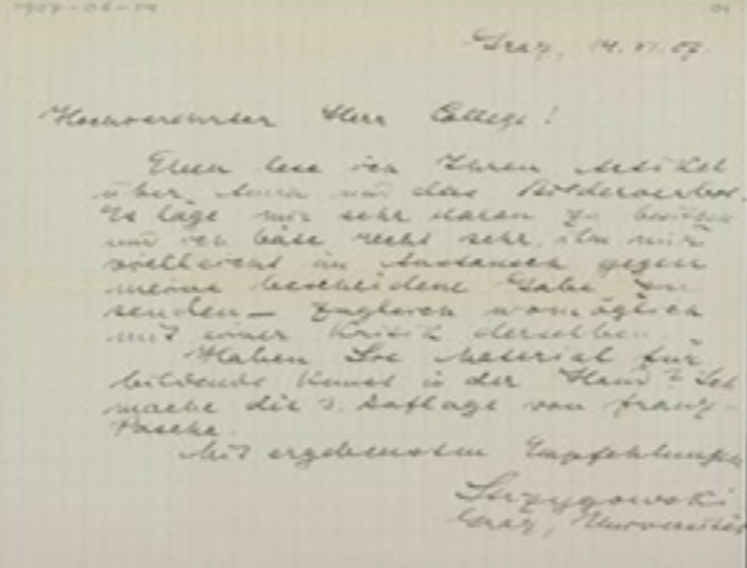 1907-06-14
Graz, 14.VI.07.
Hochverehrter Herr College!
Eben lese ich Ihren Artikel
über Amra und das Bilderverbot.
Es läge mir sehr daran zu besitzen
und ich bäte recht sehr, ihn mir
vielleicht im Austausch gegen
meine bescheidene Gabe zu
senden — zugleich womöglich
mit einer Kritik derselben.
Haben Sie Material für
bildende Kunst in der Hand? Ich
mache die 3. Auflage von Franz-
Pascha.
Mit ergebensten Empfehlungen
Strzygowski
Graz, Universität